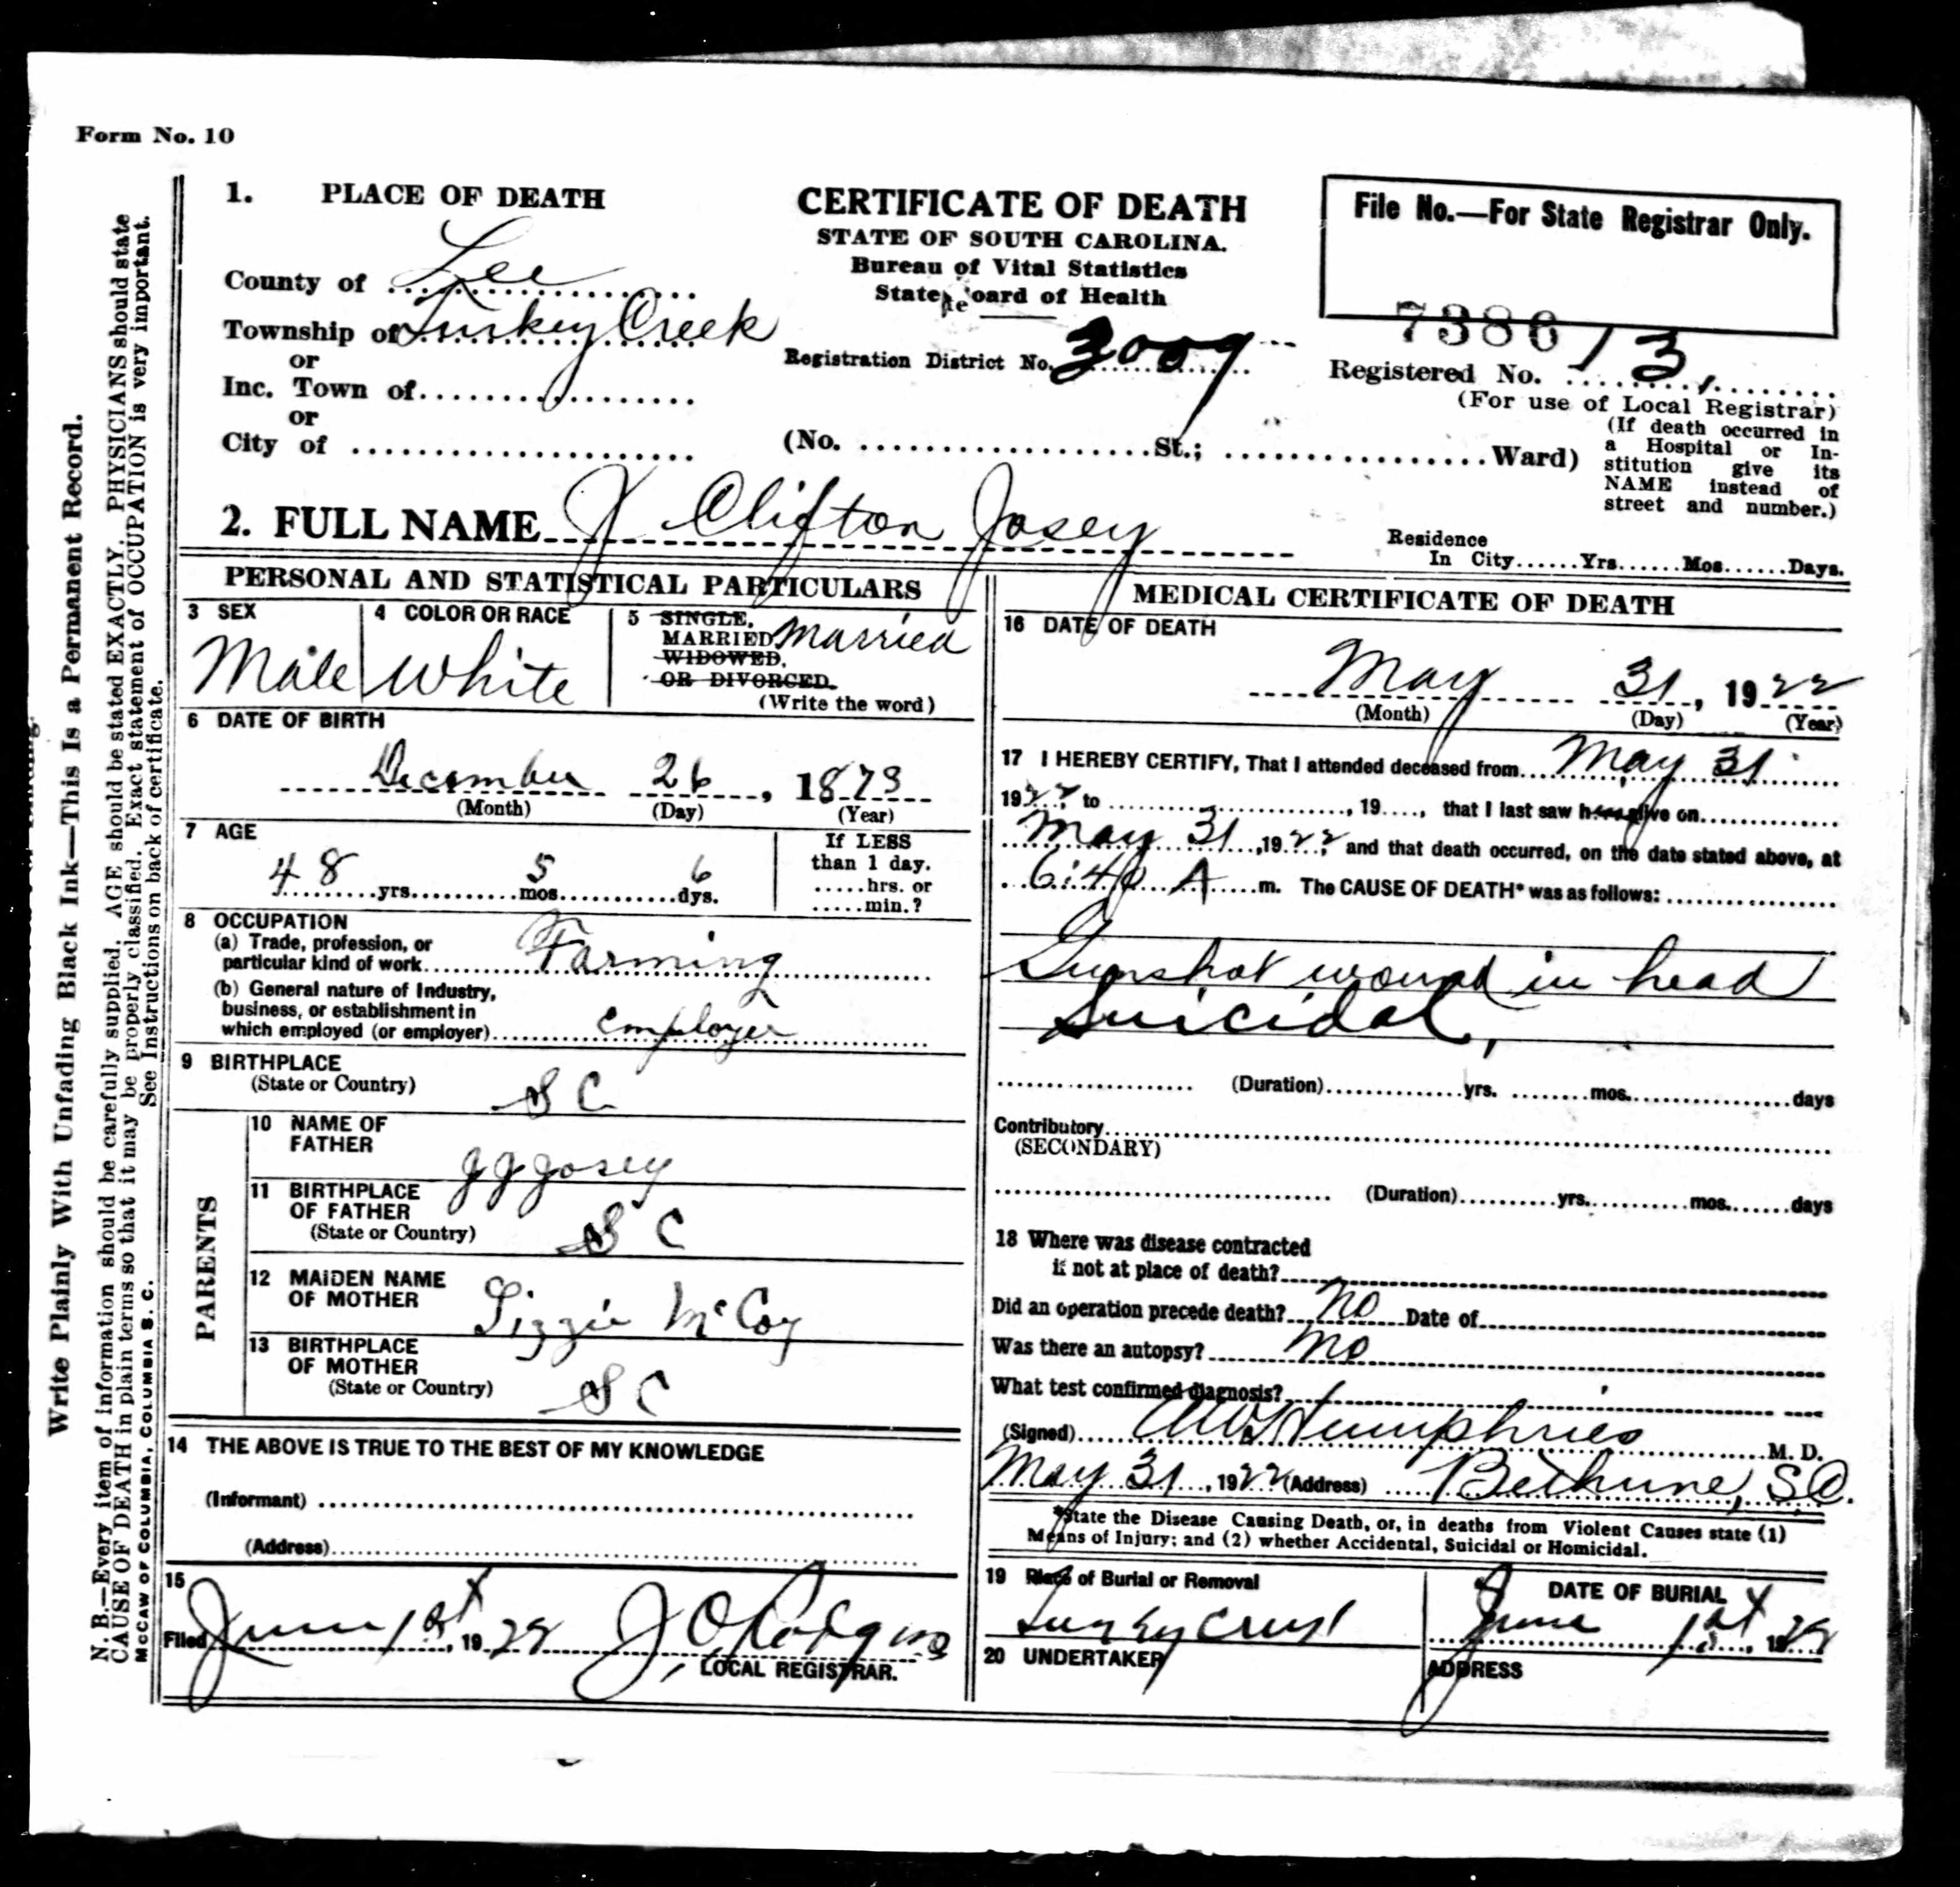 Form No. 10
1. PLACE OF DEATH
County of Lee
Township of Turkey Creek
or
Inc. Town of
or
City of
CERTIFICATE OF DEATH
STATE OF SOUTH CAROLINA.
Bureau of Vital Statistics
State Board of Health
Registration District No. 3009
File No.—For State Registrar Only.
7386
Registered No. 13,
(For use of Local Registrar)
(No. St.; Ward)
(If death occurred in
a Hospital or In-
stitution give its
NAME instead of
street and number.)
2. FULL NAME J Clifton Josey
Residence
In City Yrs Mos Days.
PERSONAL AND STATISTICAL PARTICULARS
3 SEX
Male
4 COLOR OR RACE
White
5 SINGLE,
MARRIED Married
WIDOWED,
OR DIVORCED.
(Write the word)
6 DATE OF BIRTH
December 26, 1873
(Month) (Day) (Year)
7 AGE
48 yrs. 5 mos. 6 dys.
If LESS
than 1 day.
hrs. or
min.?
8 OCCUPATION
(a) Trade, profession, or
particular kind of work Farming
(b) General nature of Industry,
business, or establishment in
which employed (or employer) employer
9 BIRTHPLACE
(State or Country) S C
PARENTS
10 NAME OF
FATHER
J J Josey
11 BIRTHPLACE
OF FATHER
(State or Country) S C
12 MAIDEN NAME
OF MOTHER Lizzie McCoy
13 BIRTHPLACE
OF MOTHER
(State or Country) S C
14 THE ABOVE IS TRUE TO THE BEST OF MY KNOWLEDGE
(Informant)
(Address)
15
Filed June 1st, 1922
LOCAL REGISTRAR.
MEDICAL CERTIFICATE OF DEATH
16 DATE OF DEATH
May 31, 1922
(Month) (Day) (Year)
17 I HEREBY CERTIFY, That I attended deceased from May 31
1922 to , 19 , that I last saw h alive on
May 31, 1922, and that death occurred, on the date stated above, at
6:40 A m. The CAUSE OF DEATH* was as follows:
Gunshot wound in head
Suicidal,
(Duration) yrs. mos. days
Contributory
(SECONDARY)
(Duration) yrs. mos. days
18 Where was disease contracted
if not at place of death?
Did an operation precede death? no Date of
Was there an autopsy? no
What test confirmed diagnosis?
(Signed) Humphries M. D.
May 31, 1922 (Address) Bethune, S.C.
*State the Disease Causing Death, or, in deaths from Violent Causes state (1)
Means of Injury; and (2) whether Accidental, Suicidal or Homicidal.
19 Place of Burial or Removal
DATE OF BURIAL
June 1st, 1922
20 UNDERTAKER
ADDRESS
Write Plainly With Unfading Black Ink—This Is a Permanent Record.
N. B.—Every item of information should be carefully supplied. AGE should be stated EXACTLY. PHYSICIANS should state
CAUSE OF DEATH in plain terms so that it may be properly classified. Exact statement of OCCUPATION is very important.
See Instructions on back of certificate.
McCAW OF COLUMBIA, COLUMBIA S. C.